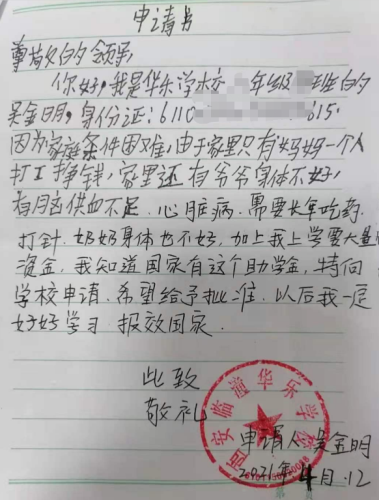 申请书
尊敬的领导
你好，我是华乐学校 年级 班的
吴金明，身份证：6110 615.
因为家庭条件困难，由于家里只有妈妈一个人
打工挣钱，家里还有爷爷身体不好，
有脑供血不足．心脏病．需要长年吃药．
打针．奶奶身体也不好，加上我上学要大量
资金，我知道国家有这个助学金，特向
学校申请．希望给予批准．以后我一定
好好学习．报效国家．
此致
敬礼
西安临潼华乐学校
申请人：吴金明
2021年4月.12